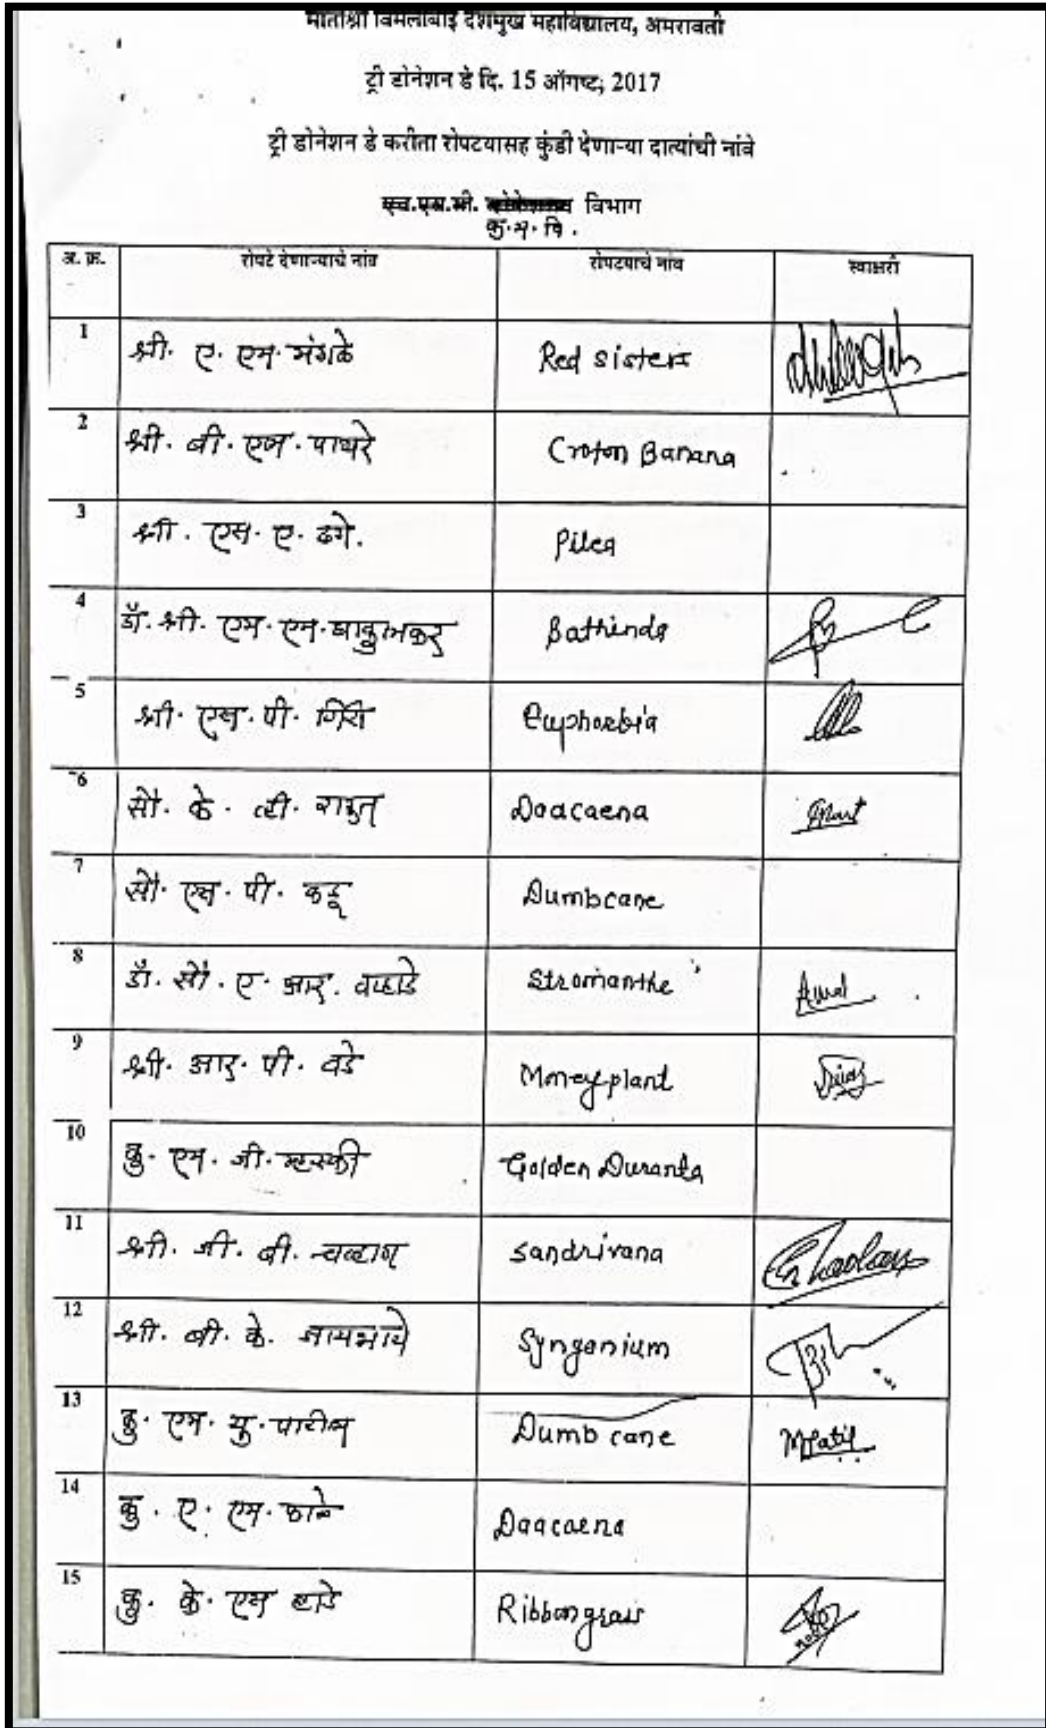 मातोश्री विमलाबाई देशमुख महाविद्यालय, अमरावती
ट्री डोनेशन डे दि. 15 ऑगष्ट, 2017
ट्री डोनेशन डे करीता रोपटयासह कुंडी देणाऱ्या दात्यांची नांवे
एच.एस.सी. विभाग
कु.म.वि.
अ.क्र. रोपटे देणाऱ्याचे नांव रोपटयाचे नांव स्वाक्षरी
1 श्री. ए. एम. मंगळे Red sisters
2 श्री. बी. एल. पाथरे Croton Banana
3 श्री. एस. ए. ढगे. Pilea
4 डॉ. श्री. एम. एन. Bathinda
5 श्री. एस. पी. गिरी Euphorbia
6 सौ. के. व्ही. राऊत Daacaena
7 सौ. एस. पी. कडू Dumbcane
8 डॉ. सौ. ए. आर. वऱ्हाडे Stromanthe
9 श्री. आर. पी. वडे Moneyplant
10 कु. एम. जी. म्हस्की Golden Duranta
11 श्री. जी. बी. चव्हाण Sandrivana Chavhan
12 श्री. बी. के. जायभाये Syngonium
13 कु. एम. यु. पाटील Dumb cane MPatil
14 कु. ए. एम. Daacaena
15 कु. के. एम. Ribbongrass